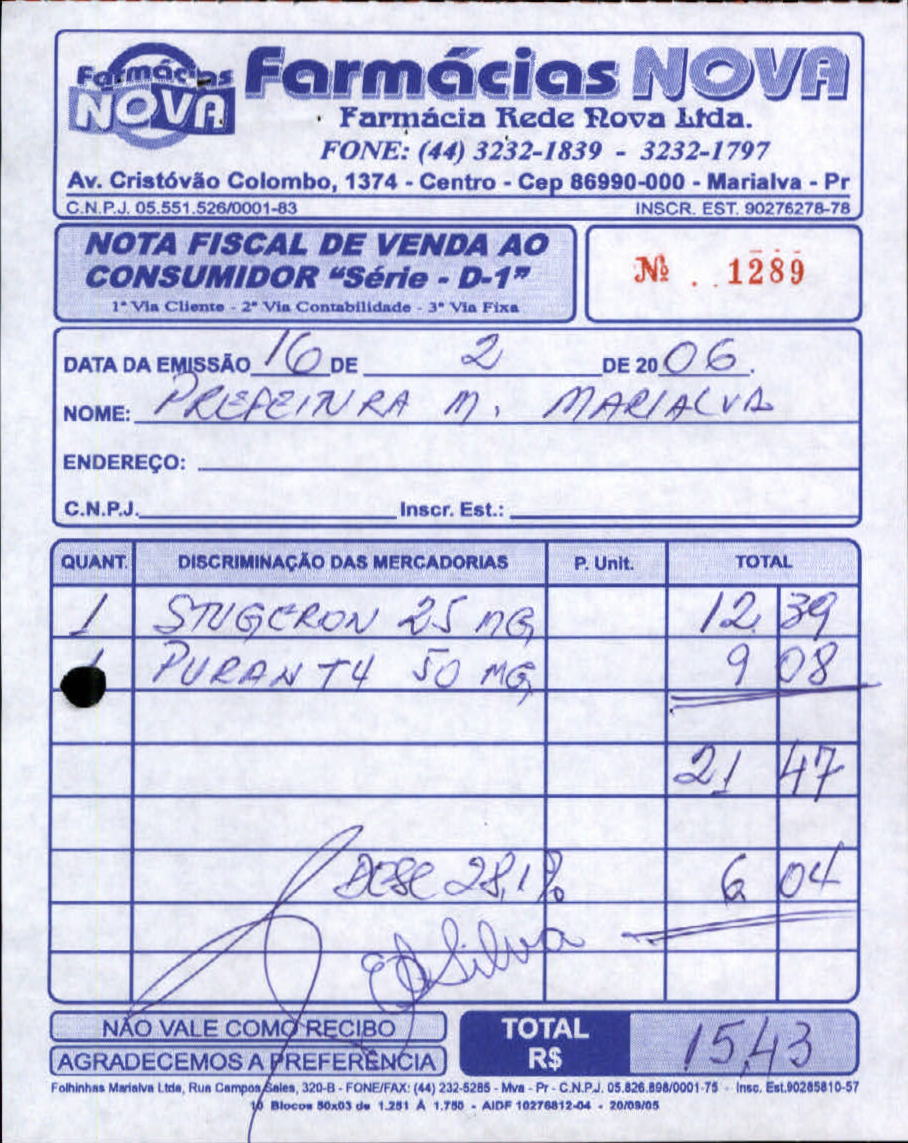 Farmácias NOVA
Farmácias NOVA
Farmácia Rede Nova Ltda.
FONE: (44) 3232-1839 - 3232-1797
Av. Cristóvão Colombo, 1374 - Centro - Cep 86990-000 - Marialva - Pr
C.N.P.J. 05.551.526/0001-83 INSCR. EST. 90276278-78
NOTA FISCAL DE VENDA AO
CONSUMIDOR "Série - D-1"
1ª Via Cliente - 2ª Via Contabilidade - 3ª Via Fixa
Nº 1289
DATA DA EMISSÃO 16 DE 2 DE 2006.
NOME: PREFEITURA M. MARIALVA
ENDEREÇO:
C.N.P.J. Inscr. Est.:
QUANT. DISCRIMINAÇÃO DAS MERCADORIAS P. Unit. TOTAL
1 STUGERON 25 MG 12 39
1 PURAN T4 50 MG 9 08
21 47
DESC 28,1% 6 04
Silva
NÃO VALE COMO RECIBO
AGRADECEMOS A PREFERÊNCIA
TOTAL
R$ 15,43
Folhinhas Marialva Ltda, Rua Campos Sales, 320-B - FONE/FAX: (44) 232-5285 - Mva - Pr - C.N.P.J. 05.826.898/0001-75 - Insc. Est.90285810-57
10 Blocos 50x03 de 1.251 À 1.750 - AIDF 10276812-04 - 20/09/05